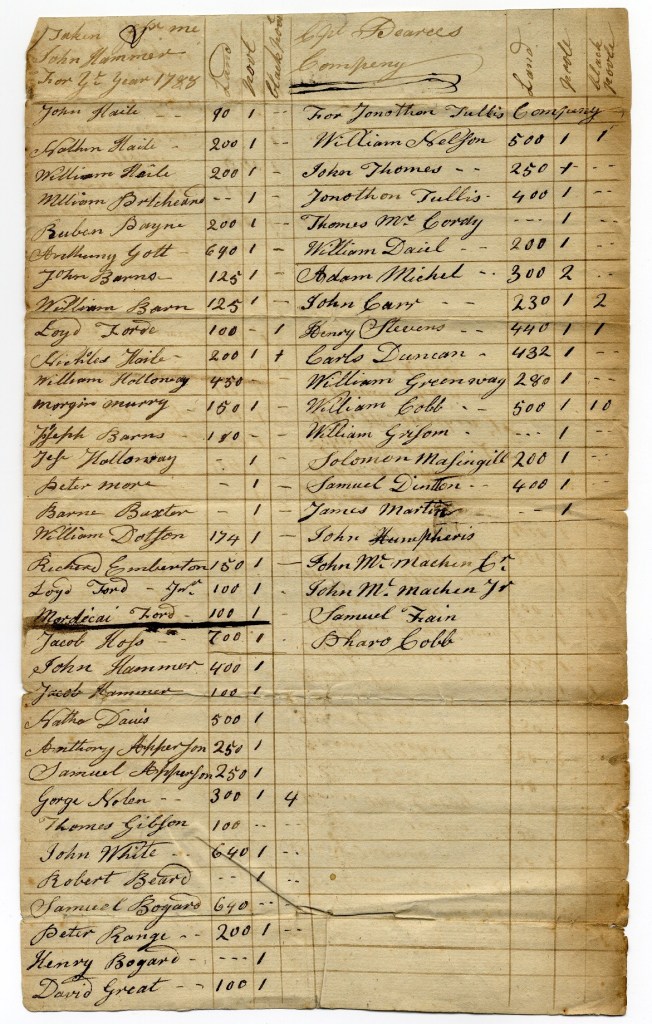 Taken pr me
John Hammer
For Ye Year 1788
Land
pool
black pool
John Haile - - 90 1 - -
Nathn Haile 200 1 - -
William Haile 200 1 - -
William Britcheard - - 1 -
Ruben Bayne 200 1
Anthuny Gott 690 1 -
John Barns - 125 1
William Barn 125 1 -
Loyd Forde 100 - 1
Nichlles Haile - 200 1 +
William Holloway 450 -
Morgin murry 150 1
Joseph Barns 180 - -
Jesse Holloway - 1
Peter more - 1
Barne Baxter - 1
William Dotson 174 1
Richard Emberton 150 1
Loyd Ford - Jnr 100 1
Mordicai Ford - 100 1
Jacob Hoss - - 700 1
John Hammer 400 1
Jacob Hammer 100 1
Natha Davis 500 1
Anthony Apperson 250 1
Samuel Apperson 250 1
Gorge Nolen - - 300 1 4
Thomes Gibson 100 - - - -
John White - - 640 1 - -
Robert Beard - - 1 - -
Samuel Bogard 640 - - - -
Peter Range - - 200 1 - -
Henry Bogard - - - - 1
David Great - - 100 1
Cpt Pearces
Compeny
Land
poole
black poole
For Jonothon Tullis Compeny
William Nelson 500 1 1
John Thomes - - 250 + - -
Jonothon Tullis - 400 1 - -
Thomes Mc Cordy - - - 1 - -
William Daiel - - 200 1
Adam Michel - - 300 2 - -
John Carr - - 230 1 2
Henry Stevens - - 440 1 1
Carls Duncan - 432 1 - -
William Greenway 280 1 - -
William Cobb - - 500 1 10
William Grisom - - - - 1 - -
Solomon Masingill 200 1 - -
Samuel Dintton - - 400 1 - -
James Martin - - 1
John Humpheris
John Mc Machen Cr
John Mc machen Jr
Samuel Fain
Pharo Cobb